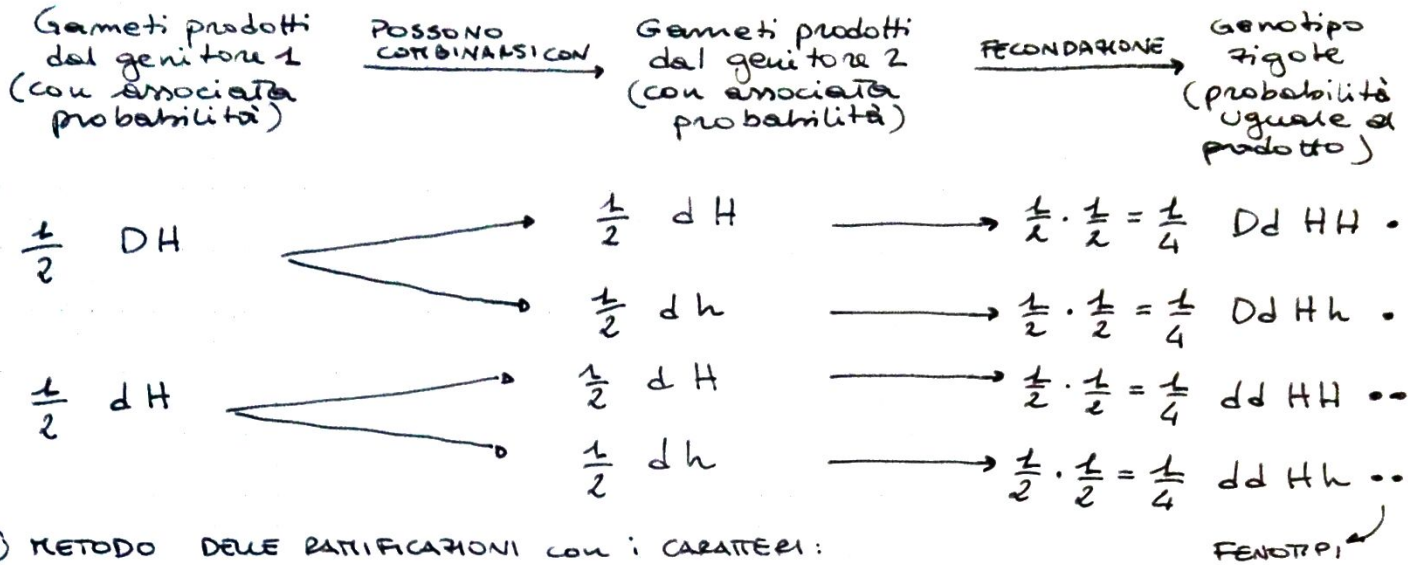 Gameti prodotti
dal genitore 1
(con associata
probabilità)
POSSONO
COMBINARSI CON
Gameti prodotti
dal genitore 2
(con associata
probabilità)
FECONDAZIONE
Genotipo
zigote
(probabilità
uguale al
prodotto)
1/2 DH
1/2 dH
1/2 · 1/2 = 1/4 Dd HH •
1/2 dh
1/2 · 1/2 = 1/4 Dd Hh •
1/2 dH
1/2 dH
1/2 · 1/2 = 1/4 dd HH ••
1/2 dh
1/2 · 1/2 = 1/4 dd Hh ••
) METODO DELLE RAMIFICAZIONI con i CARATTERI:
FENOTIPI